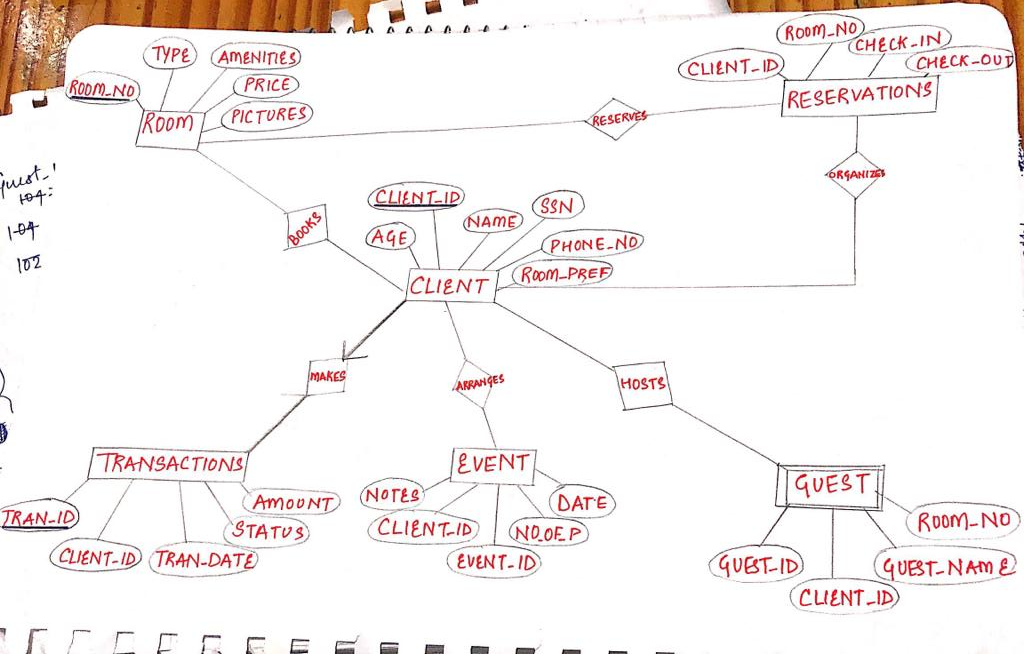 ROOM_NO
TYPE
AMENITIES
PRICE
PICTURES
ROOM
RESERVES
CLIENT_ID
ROOM_NO
CHECK_IN
CHECK_OUT
RESERVATIONS
ORGANIZES
BOOKS
CLIENT_ID
AGE
NAME
SSN
PHONE_NO
ROOM_PREF
CLIENT
MAKES
ARRANGES
HOSTS
TRANSACTIONS
TRAN_ID
CLIENT_ID
TRAN_DATE
STATUS
AMOUNT
EVENT
NOTES
CLIENT_ID
EVENT_ID
NO_OF_P
DATE
GUEST
GUEST_ID
CLIENT_ID
GUEST_NAME
ROOM_NO
104
102